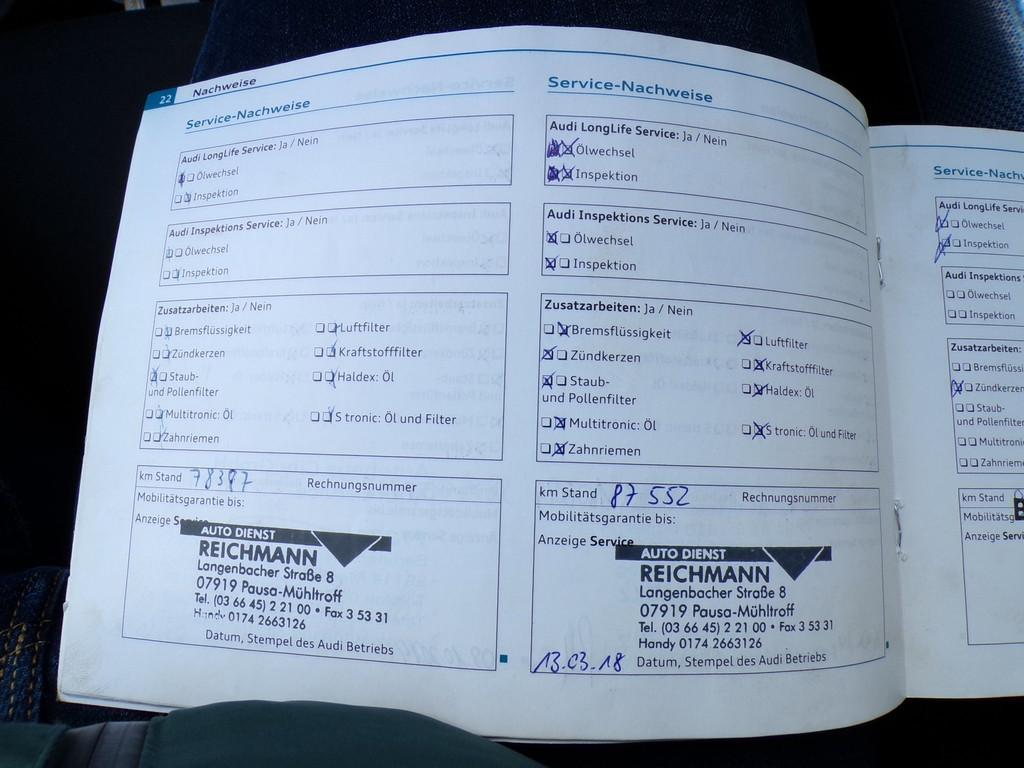 22 Nachweise
Service-Nachweise
Audi LongLife Service: Ja / Nein
Ölwechsel
Inspektion
Audi Inspektions Service: Ja / Nein
Ölwechsel
Inspektion
Zusatzarbeiten: Ja / Nein
Bremsflüssigkeit Luftfilter
Zündkerzen Kraftstofffilter
Staub-
und Pollenfilter Haldex: Öl
Multitronic: Öl S tronic: Öl und Filter
Zahnriemen
km Stand 78387 Rechnungsnummer
Mobilitätsgarantie bis:
Anzeige Service
AUTO DIENST
REICHMANN
Langenbacher Straße 8
07919 Pausa-Mühltroff
Tel. (03 66 45) 2 21 00 • Fax 3 53 31
Handy 0174 2663126
Datum, Stempel des Audi Betriebs
Service-Nachweise
Audi LongLife Service: Ja / Nein
Ölwechsel
Inspektion
Audi Inspektions Service: Ja / Nein
Ölwechsel
Inspektion
Zusatzarbeiten: Ja / Nein
Bremsflüssigkeit Luftfilter
Zündkerzen Kraftstofffilter
Staub-
und Pollenfilter Haldex: Öl
Multitronic: Öl S tronic: Öl und Filter
Zahnriemen
km Stand 87 552 Rechnungsnummer
Mobilitätsgarantie bis:
Anzeige Service
AUTO DIENST
REICHMANN
Langenbacher Straße 8
07919 Pausa-Mühltroff
Tel. (03 66 45) 2 21 00 • Fax 3 53 31
Handy 0174 2663126
13.03.18 Datum, Stempel des Audi Betriebs
Service-Nachw
Audi LongLife Servi
Ölwechsel
Inspektion
Audi Inspektions
Ölwechsel
Inspektion
Zusatzarbeiten:
Bremsflüssi
Zündkerzen
Staub-
und Pollenfilter
Multitronic
Zahnriemen
km Stand
Mobilitätsg
Anzeige Servi